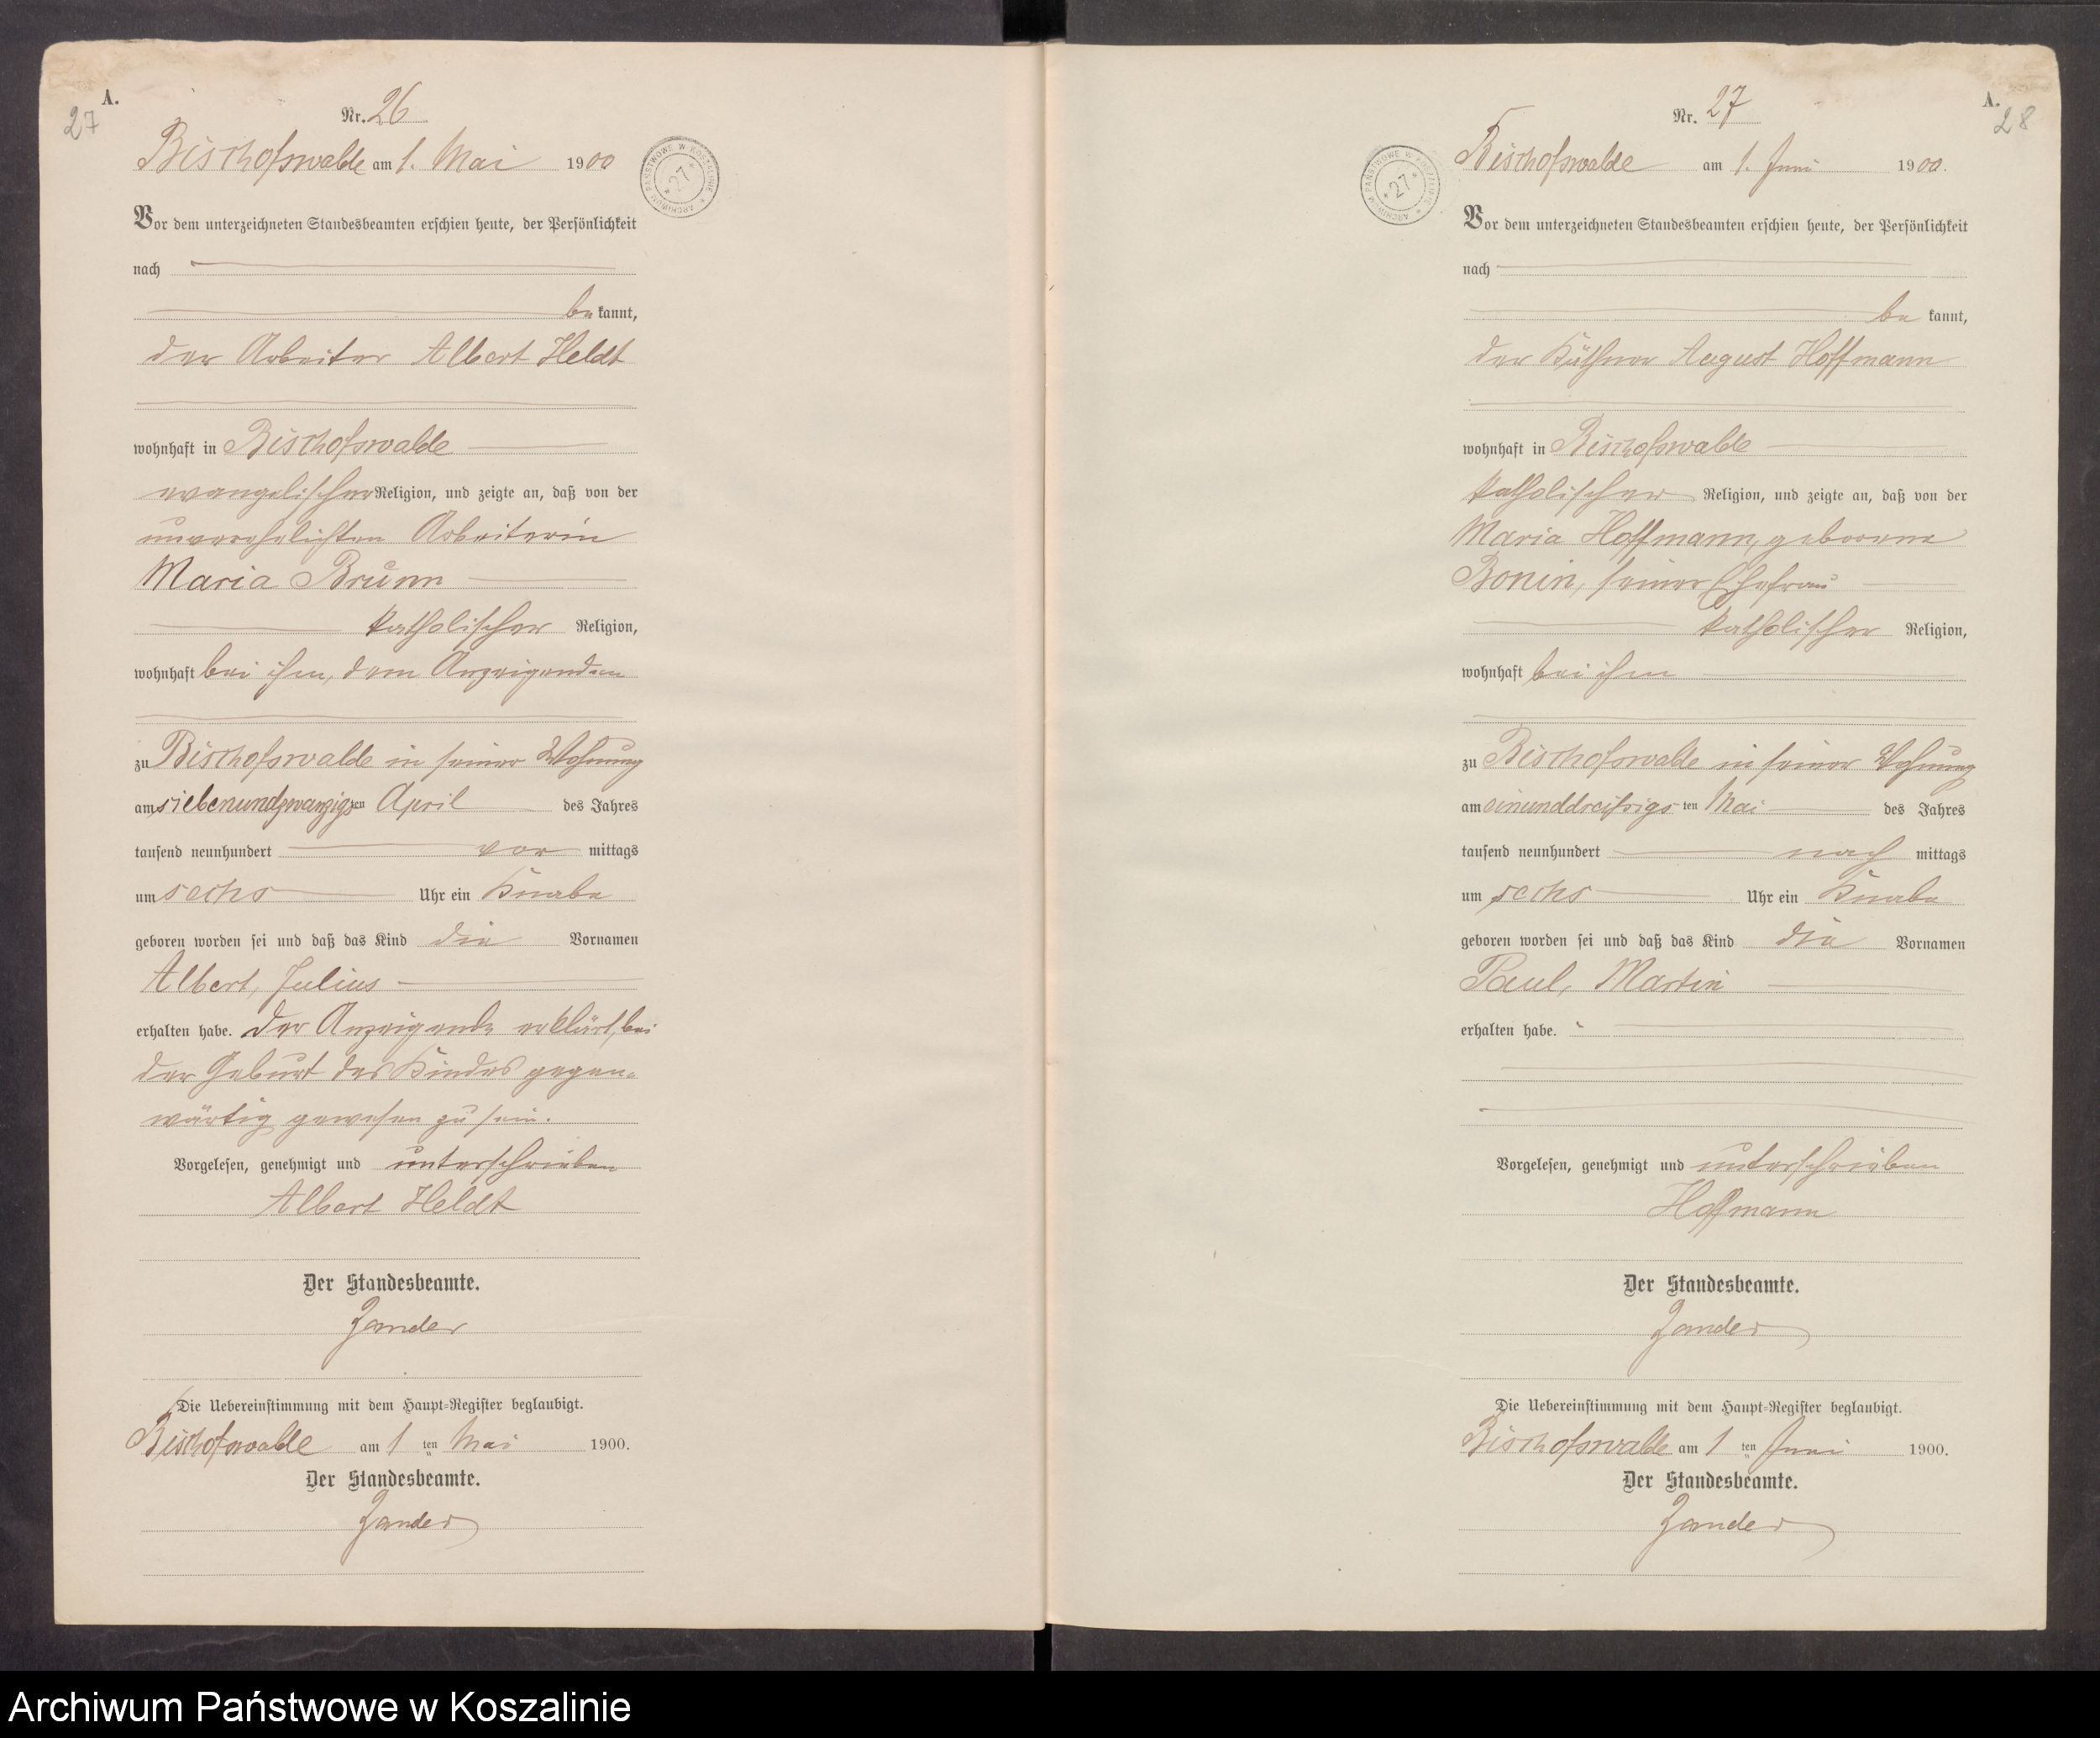 A.
27
Nr. 26
Bischofswalde am 1. Mai 1900
ARCHIWUM PAŃSTWOWE W KOSZALINIE * 27 *
Vor dem unterzeichneten Standesbeamten erschien heute, der Persönlichkeit
nach
bekannt,
der Arbeiter Albert Heldt
wohnhaft in Bischofswalde
evangelischer Religion, und zeigte an, daß von der
unverehelichten Arbeiterin
Maria Brunn
katholischer Religion,
wohnhaft bei ihm, dem Anzeigenden
zu Bischofswalde in seiner Wohnung
am siebenundzwanzigsten April des Jahres
tausend neunhundert vor mittags
um sechs Uhr ein Knabe
geboren worden sei und daß das Kind die Vornamen
Albert, Julius
erhalten habe. Der Anzeigende erklärt, bei
der Geburt des Kindes gegen-
wärtig gewesen zu sein.
Vorgelesen, genehmigt und unterschrieben
Albert Heldt
Der Standesbeamte.
Zander
Die Uebereinstimmung mit dem Haupt-Register beglaubigt.
Bischofswalde am 1 ten Mai 1900.
Der Standesbeamte.
Zander
A.
28
Nr. 27
Bischofswalde am 1. Juni 1900.
ARCHIWUM PAŃSTWOWE W KOSZALINIE * 27 *
Vor dem unterzeichneten Standesbeamten erschien heute, der Persönlichkeit
nach
be kannt,
der Käthner August Hoffmann
wohnhaft in Bischofswalde
katholischer Religion, und zeigte an, daß von der
Maria Hoffmann, geborene
Bonin, seiner Ehefrau
katholischer Religion,
wohnhaft bei ihm
zu Bischofswalde in seiner Wohnung
am einunddreißigs ten Mai des Jahres
tausend neunhundert nach mittags
um sechs Uhr ein Knabe
geboren worden sei und daß das Kind die Vornamen
Paul, Martin
erhalten habe.
Vorgelesen, genehmigt und unterschrieben
Hoffmann
Der Standesbeamte.
Zander
Die Uebereinstimmung mit dem Haupt-Register beglaubigt.
Bischofswalde am 1 ten Juni 1900.
Der Standesbeamte.
Zander
Archiwum Państwowe w Koszalinie